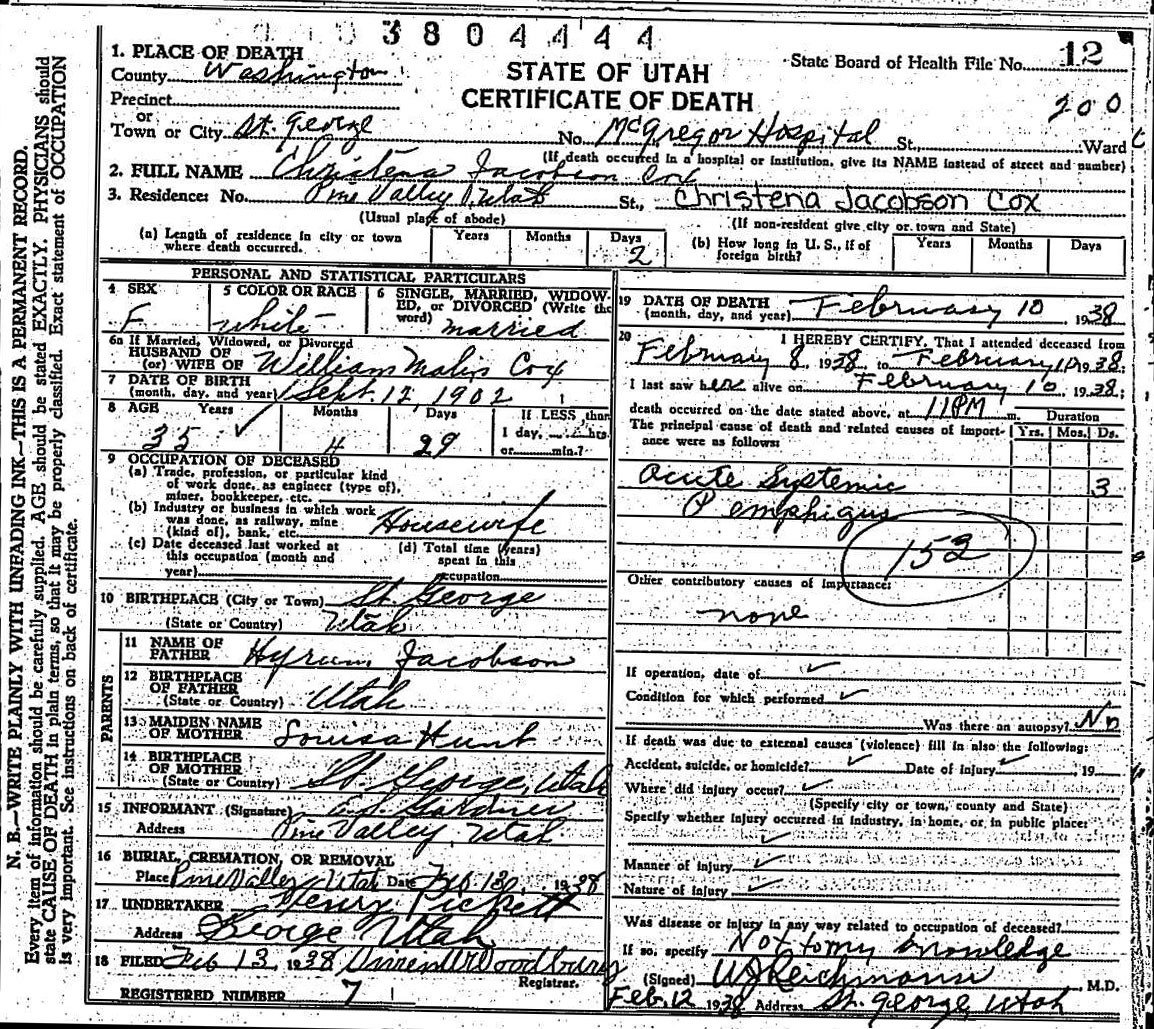 3804444
1. PLACE OF DEATH
County Washington
State Board of Health File No. 12
STATE OF UTAH
Precinct
CERTIFICATE OF DEATH
200
or
Town or City St. George No. McGregor Hospital St., Ward
(If death occurred in a hospital or institution, give its NAME instead of street and number)
2. FULL NAME Christena Jacobson Cox
3. Residence: No. Pine Valley, Utah St., Christena Jacobson Cox
(Usual place of abode) (If non-resident give city or town and State)
(a) Length of residence in city or town where death occurred. Years Months Days 2
(b) How long in U. S., if of foreign birth? Years Months Days
PERSONAL AND STATISTICAL PARTICULARS
4 SEX F
5 COLOR OR RACE white
6 SINGLE, MARRIED, WIDOWED, or DIVORCED (Write the word) married
6a If Married, Widowed, or Divorced
HUSBAND OF
(or) WIFE OF William Cox
7 DATE OF BIRTH
(month, day, and year) Sept. 12, 1902
8 AGE Years Months Days If LESS than
1 day, hrs.
35 4 29 or min.?
9 OCCUPATION OF DECEASED
(a) Trade, profession, or particular kind
of work done, as engineer (type of),
miner, bookkeeper, etc.
(b) Industry or business in which work
was done, as railway, mine
(kind of), bank, etc. Housewife
(c) Date deceased last worked at
this occupation (month and
year)
(d) Total time (years)
spent in this
occupation
10 BIRTHPLACE (City or Town) St. George
(State or Country) Utah
PARENTS
11 NAME OF
FATHER Hyrum Jacobson
12 BIRTHPLACE
OF FATHER
(State or Country) Utah
13 MAIDEN NAME
OF MOTHER Louisa Hunt
14 BIRTHPLACE
OF MOTHER
(State or Country) St. George, Utah
15 INFORMANT (Signature) Gardner
Address Pine Valley, Utah
16 BURIAL, CREMATION, OR REMOVAL
Place Pine Valley Utah Date Feb 13, 1938
17 UNDERTAKER Henry Pickett
Address George Utah
18 FILED Feb 13 1938 Woodbury
Registrar.
REGISTERED NUMBER 7
19 DATE OF DEATH
(month, day, and year) February 10 1938
20 I HEREBY CERTIFY, That I attended deceased from
February 8, 1938, to February 10 1938;
I last saw her alive on February 10 1938;
death occurred on the date stated above, at 11PM m.
Duration
The principal cause of death and related causes of importance were as follows: Yrs. Mos. Ds.
Acute Systemic 3
Pemphigus
153
Other contributory causes of importance:
none
If operation, date of
Condition for which performed
Was there an autopsy? No
If death was due to external causes (violence) fill in also the following:
Accident, suicide, or homicide? Date of injury , 19
Where did injury occur?
(Specify city or town, county and State)
Specify whether injury occurred in industry, in home, or in public place:
Manner of injury
Nature of injury
Was disease or injury in any way related to occupation of deceased?
If so, specify Not to my knowledge
(Signed) W J Reichmann, M.D.
Feb. 12 1938 Address St. George Utah
N. B.—WRITE PLAINLY WITH UNFADING INK—THIS IS A PERMANENT RECORD.
Every item of information should be carefully supplied. AGE should be stated EXACTLY. PHYSICIANS should
state CAUSE OF DEATH in plain terms, so that it may be properly classified. Exact statement of OCCUPATION
is very important. See instructions on back of certificate.